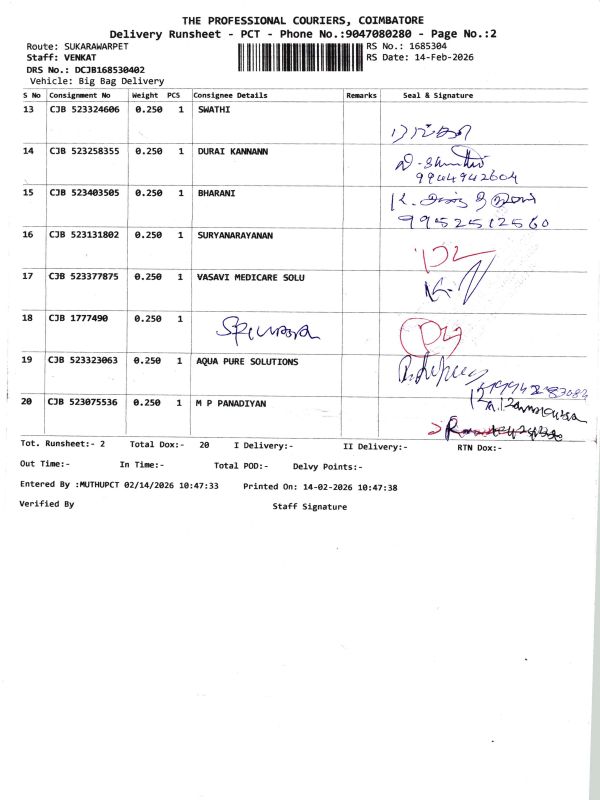 THE PROFESSIONAL COURIERS, COIMBATORE
Delivery Runsheet - PCT - Phone No.:9047080280 - Page No.:2
Route: SUKARAWARPET
RS No.: 1685304
Staff: VENKAT
RS Date: 14-Feb-2026
DRS No.: DCJB168530402
Vehicle: Big Bag Delivery
S No Consignment No Weight PCS Consignee Details Remarks Seal & Signature
13 CJB 523324606 0.250 1 SWATHI
14 CJB 523258355 0.250 1 DURAI KANNANN
9944942604
15 CJB 523403505 0.250 1 BHARANI
9952512560
16 CJB 523131802 0.250 1 SURYANARAYANAN
17 CJB 523377875 0.250 1 VASAVI MEDICARE SOLU
18 CJB 1777490 0.250 1
19 CJB 523323063 0.250 1 AQUA PURE SOLUTIONS
20 CJB 523075536 0.250 1 M P PANADIYAN
Tot. Runsheet:- 2 Total Dox:- 20 I Delivery:- II Delivery:- RTN Dox:-
Out Time:- In Time:- Total POD:- Delvy Points:-
Entered By :MUTHUPCT 02/14/2026 10:47:33 Printed On: 14-02-2026 10:47:38
Verified By Staff Signature